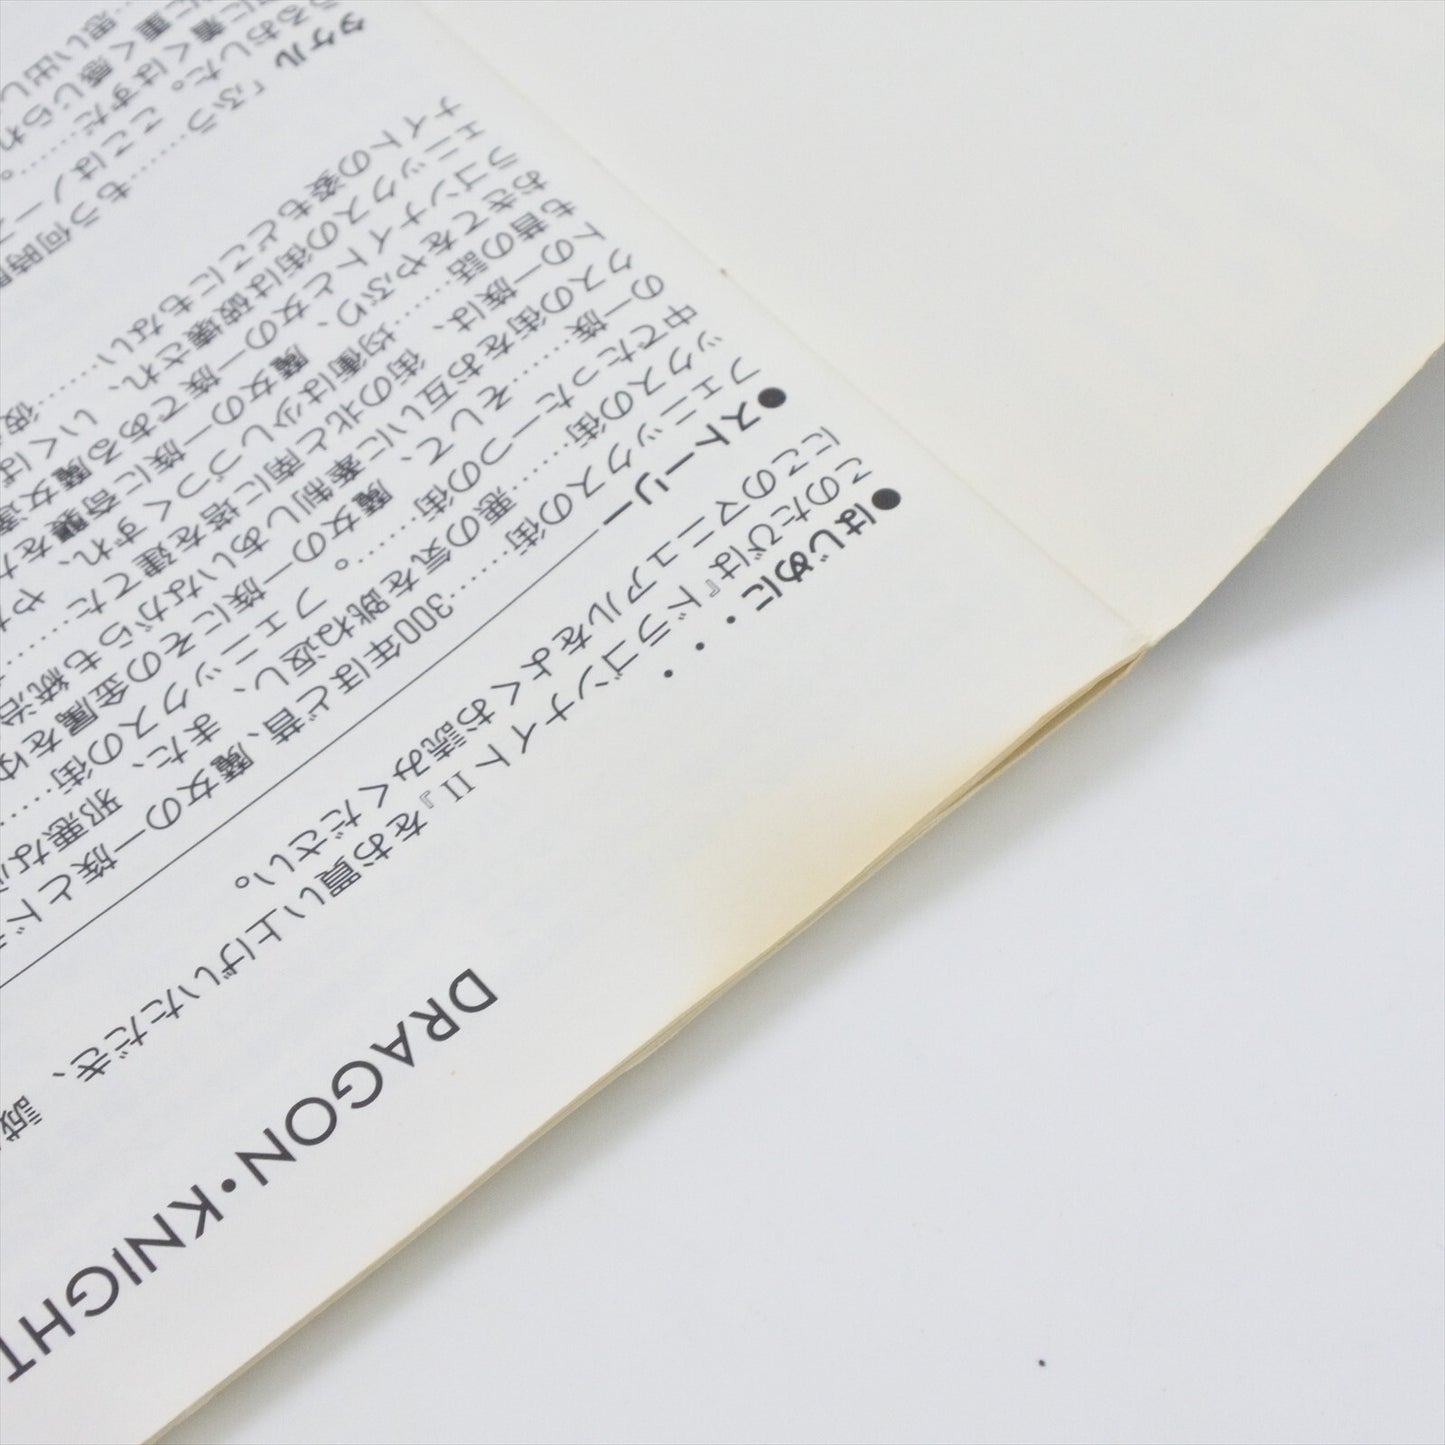 DRAGON・KNIGHT
●はじめに・・・・
このたびは『ドラゴンナイトⅡ』をお買い上げいただき、誠
にこのマニュアルをよくお読みください。
●ストーリー
フェニックスの街……300年ほど昔、魔女の一族とド
ックスの街……悪の気を跳ね返し、また、邪悪な
中でたった一つの街……。フェニックスの街……
の一族……そして、魔女の一族にその金属をゆ
クスの街をお互いに牽制しあいながらも統治
トの一族は、街の北と南に塔を建てた
も昔の話……均衡は少しづつくずれ、や
おきてをやぶり、魔女の一族に奇襲をか
ラゴンナイトと女の一族である魔女達
ェニックスの街は破壊され、いくば
ナイトの姿もどこにもない……彼
タケル「ふう……もう何時間
うるおした。ここはノー
に着くはずだ……。
に重く感じられ
思い出し